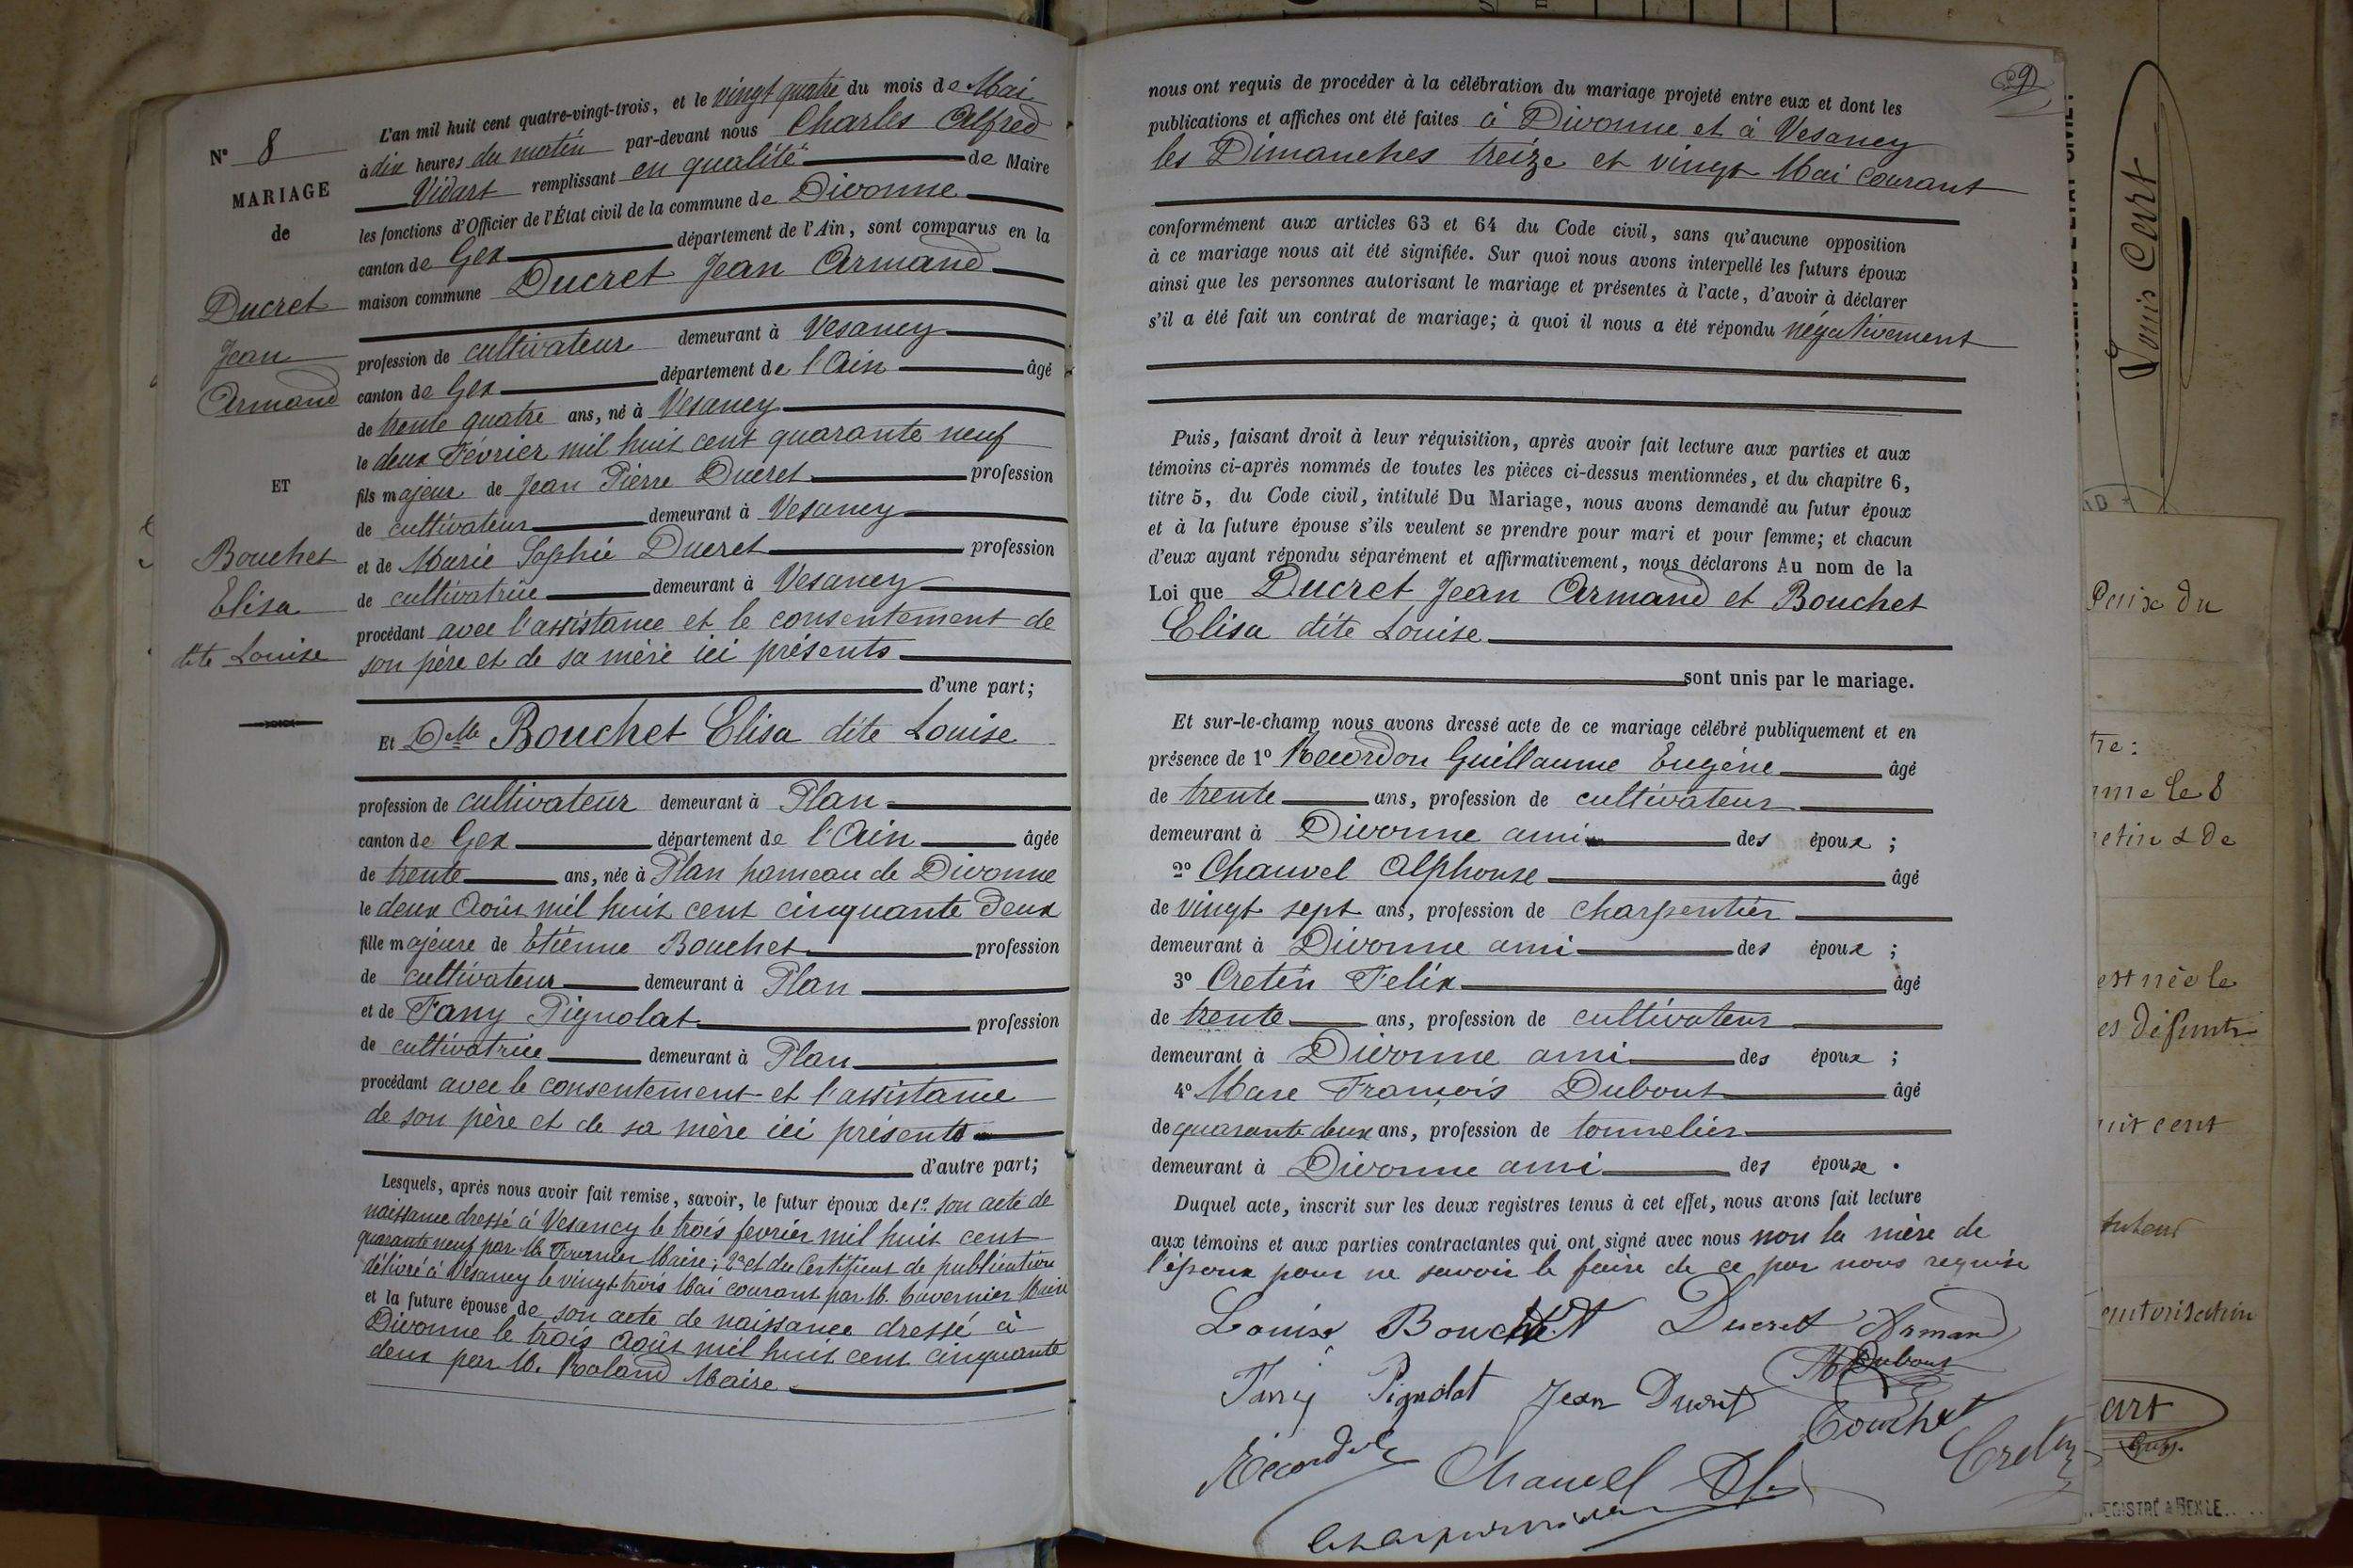 N° 8
MARIAGE
de
Ducret
Jean
Armand
ET
Bouchet
Elisa
dite Louise
L'an mil huit cent quatre-vingt-trois, et le vingt quatre du mois de Mai
à dix heures du matin par-devant nous Charles Alfred
Vidart remplissant en qualité de Maire
les fonctions d'Officier de l'État civil de la commune de Divonne
canton de Gex département de l'Ain, sont comparus en la
maison commune Ducret Jean Armand
profession de cultivateur demeurant à Vesancy
canton de Gex département de l'Ain âgé
de trente quatre ans, né à Vesancy
le deux Février mil huit cent quarante neuf
fils majeur de Jean Pierre Ducret profession
de cultivateur demeurant à Vesancy
et de Marie Sophie Ducret profession
de cultivatrice demeurant à Vesancy
procédant avec l'assistance et le consentement de
son père et de sa mère ici présents
d'une part;
Et Delle Bouchet Elisa dite Louise
profession de cultivateur demeurant à Plan
canton de Gex département de l'Ain âgée
de trente ans, née à Plan hameau de Divonne
le deux Août mil huit cent cinquante deux
fille majeure de Etienne Bouchet profession
de cultivateur demeurant à Plan
et de Fany Pignolat profession
de cultivatrice demeurant à Plan
procédant avec le consentement et l'assistance
de son père et de sa mère ici présents
d'autre part;
Lesquels, après nous avoir fait remise, savoir, le futur époux de 1° son acte de
naissance dressé à Vesancy le trois fevrier mil huit cent
quarante neuf par M. Fournier Maire; 2° et du Certificat de publication
délivré à Vesancy le vingt trois Mai courant par M. Tavernier Maire
et la future épouse de son acte de naissance dressé à
Divonne le trois Août mil huit cent cinquante
deux par M. Roland Maire
9
nous ont requis de procéder à la célébration du mariage projeté entre eux et dont les
publications et affiches ont été faites à Divonne et à Vesancy
les Dimanches treize et vingt Mai courant
conformément aux articles 63 et 64 du Code civil, sans qu'aucune opposition
à ce mariage nous ait été signifiée. Sur quoi nous avons interpellé les futurs époux
ainsi que les personnes autorisant le mariage et présentes à l'acte, d'avoir à déclarer
s'il a été fait un contrat de mariage; à quoi il nous a été répondu négativement
Puis, faisant droit à leur réquisition, après avoir fait lecture aux parties et aux
témoins ci-après nommés de toutes les pièces ci-dessus mentionnées, et du chapitre 6,
titre 5, du Code civil, intitulé Du Mariage, nous avons demandé au futur époux
et à la future épouse s'ils veulent se prendre pour mari et pour femme; et chacun
d'eux ayant répondu séparément et affirmativement, nous déclarons Au nom de la
Loi que Ducret Jean Armand et Bouchet
Elisa dite Louise
sont unis par le mariage.
Et sur-le-champ nous avons dressé acte de ce mariage célébré publiquement et en
présence de 1° Recordon Guillaume Eugène âgé
de trente ans, profession de cultivateur
demeurant à Divonne ami des époux ;
2° Chauvel Alphonse âgé
de vingt sept ans, profession de charpentier
demeurant à Divonne ami des époux ;
3° Cretin Felix âgé
de trente ans, profession de cultivateur
demeurant à Divonne ami des époux ;
4° Marc François Dubout âgé
de quarante deux ans, profession de tonnelier
demeurant à Divonne ami des époux .
Duquel acte, inscrit sur les deux registres tenus à cet effet, nous avons fait lecture
aux témoins et aux parties contractantes qui ont signé avec nous non la mère de
l'époux pour ne savoir le faire de ce par nous requise
Louise Bouchet Ducret Armand
M Dubout
Fany Pignolat Jean Ducret
Bouchet
Recordon Chauvel Al. Cretin
Louis Curt
Paix du
tre:
le 8
est née le
es défunts
uit cent
tuteur
autorisation
art
EGISTRÉ A GEX LE